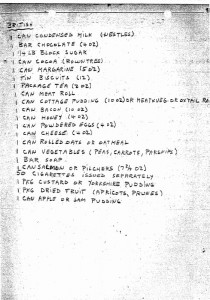 BRITISH
1 CAN CONDENSED MILK (NESTLES)
BAR CHOCOLATE (4 OZ)
1/4 LB BLOCK SUGAR
1 CAN COCOA (ROWNTREE)
1 CAN MARGARINE (5 OZ)
TIN BISCUITS (12)
1 PACKAGE TEA (2 OZ)
1 CAN MEAT ROLL
1 CAN COTTAGE PUDDING (10 OZ) OR MEAT & VEG OR OXTAIL RA
1 CAN BACON (10 OZ)
1 CAN HONEY (4 OZ)
1 CAN POWDERED EGGS (4 OZ)
1 CAN CHEESE (4 OZ)
1 CAN ROLLED OATS OR OATMEAL
1 CAN VEGETABLES (PEAS, CARROTS, PARSNIPS)
1 BAR SOAP
1 CAN SALMON OR PILCHERS (7 3/4 OZ)
50 CIGARETTES ISSUED SEPARATELY
1 PKG CUSTARD OR YORKSHIRE PUDDING
1 PKG DRIED FRUIT (APRICOTS, PRUNES)
1 CAN APPLE OR JAM PUDDING